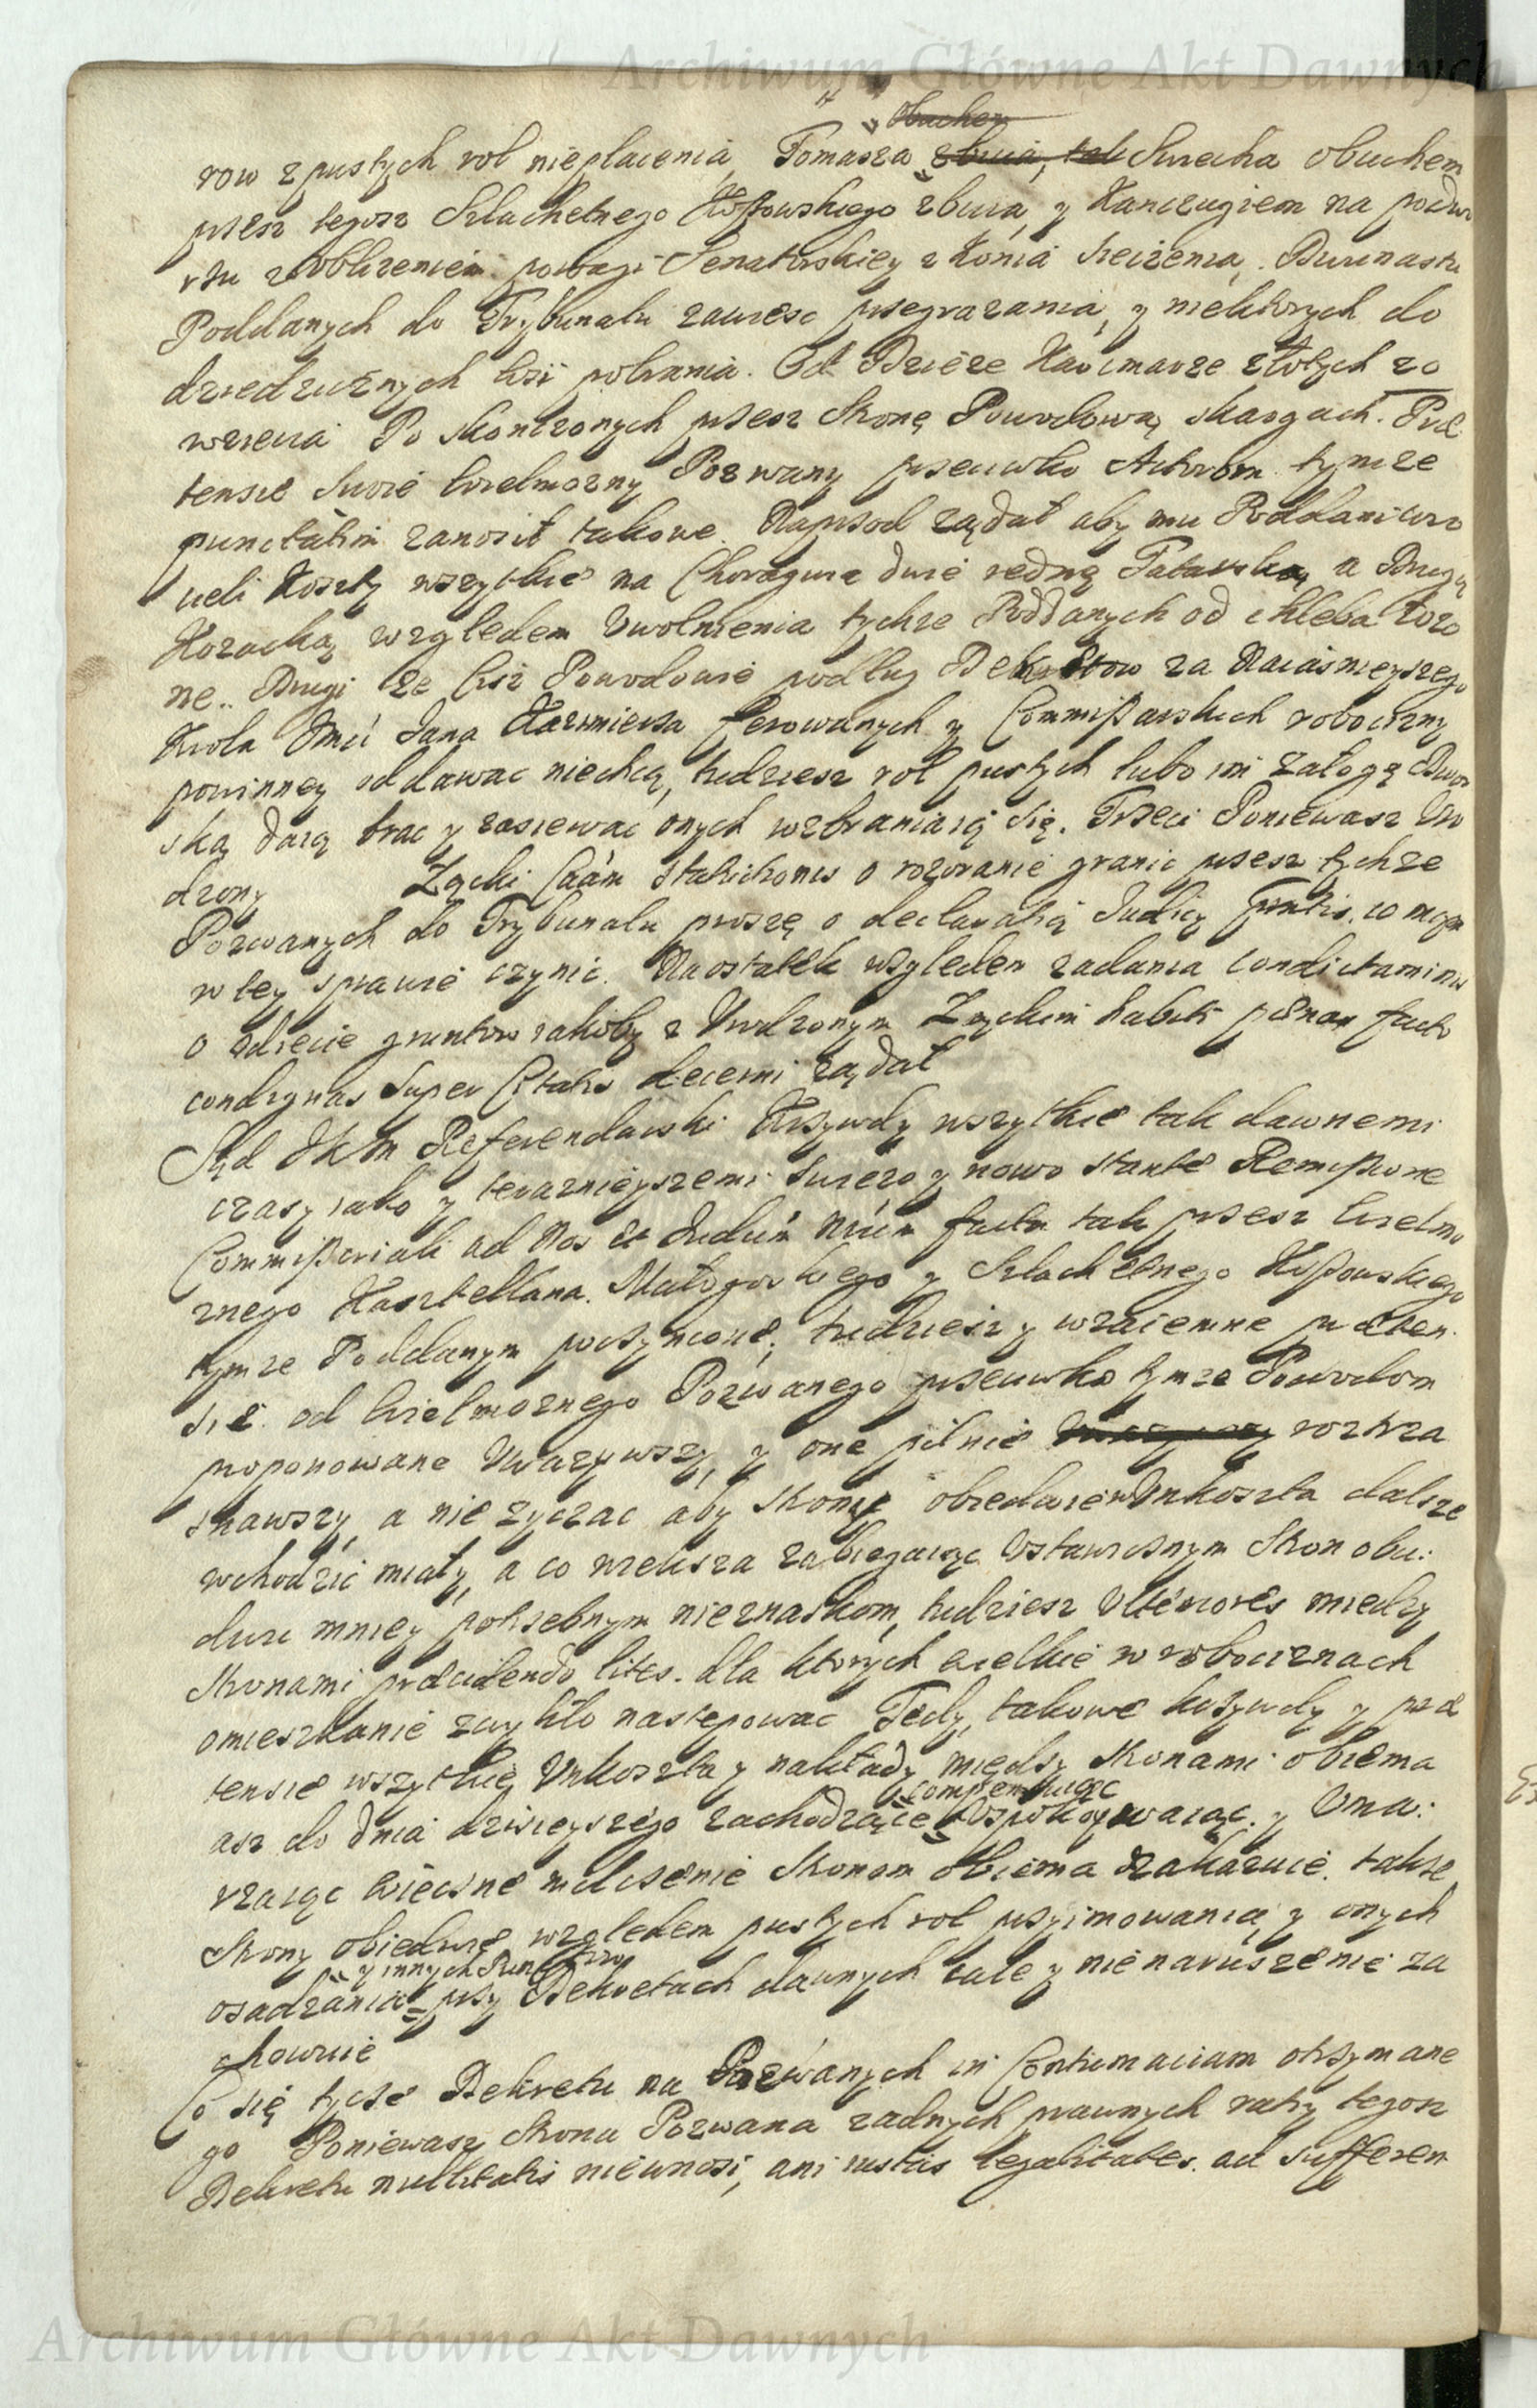 Archiwum Główne Akt Dawnych
Obuchem
row z pustych rol niepłacenia, Tomasza zbicia, tak Swiecha obuchem
przez tegosz Szlachetnego Kossowskiego zbicia, y Kanczugiem na podwo
rzu z Ubliżeniem powagi Senatorskiey z Konia sieczenia. Dwunastu
Poddanych do Trybunału zawieść przegrazania, y niektorych do
dziedzicznych Wsi pobrania. Od Dzieże Karczmarze złotych 20
wzięcia Po skonczonych przez Stronę Powodową skargach. Præ
tensie swoie Wielmozny Pozwany przeciwko Actorom tymze
punctatim zanosił takowe. Naprzod ządał aby mu Poddani wro
cili Koszty wszytkie na Chorągwie dwie iedną Tatarską, a Drugą
Kozacką, względem Uwolnienia tychze Poddanych od chleba łozo
ne. Drugi, ze Ciż Powodowie podług Dekretow za Naiaśnieyszego
Krola Jmci Jana Kazimierza ferowanych y Commissarskich robocizny
powinney oddawac niechcą, tudziesz rol pustych lubo im załogę Dwor
ską daią brac y zasiewac onych wzbraniaią się. Trzeci Poniewasz Uro
dzony Zycki Cśam Stakichonis o rozoranie granic przesz tychze
Pozwanych do Trybunału proszę o declaratią Judicij Pntis. co maią
w tey sprawie czynic. Naostatek względem zadania condictaminis
o odięcie gruntow iakoby z Urodzonym Zyckim habiti pænas facto
condignas super Citatis decerni ządał
Sąd JKM Referendarski Krzywdy wszytkie tak dawnemi
czasy iako y teraznieyszemi swiezo y nowo stante Remissione
Commissariali ad Nos et Judium Nrum facta tak przesz Wielmo
znego Kasztellana Małogoskiego y Szlachetnego Kossowskiego
tymze Poddanym poczynione, tudziesz y wzaiemne præten
sie od Wielmoznego Pozwanego przeciwko tymze Powodom
proponowane Uwazywszy, y one pilnie roztrzą
snąwszy, a nie zycząc aby strony obiedwie w Unkoszta dalsze
wchodzić miały, a co większa zabiegaiąc Ustawicznym Stron obu:
dwu mniey potrzebnym niesnaskom, tudziesz Ulteriores między
Stronami præcidendo lites. dla ktorych wielkie w robociznach
omieszkanie zwykło następowac Tedy takowe krzywdy y præ
tensie wszytkie Unkoszta y nakłady między Stronami obiema
compensuiąc
asz do dnia dzisieyszego zachodzące Uspokoywaiąc y Uma:
rzaiąc wieczne milczenie Stronom obiema nakazuie. takze
Strony obiedwie względem pustych rol przyimowania y onych
y innych Punctow
osadzania przy Dekretach dawnych całe y nienaruszenie za
chowuie
Co się tycze Dekretu na Pozwanych in Contumaciam otrzymane
go Poniewasz Strona Pozwana zadnych prawnych raciy tegosz
Dekretu nullitatis niewnosi, ani iustas legalitates ad sufferen
Archiwum Główne Akt Dawnych